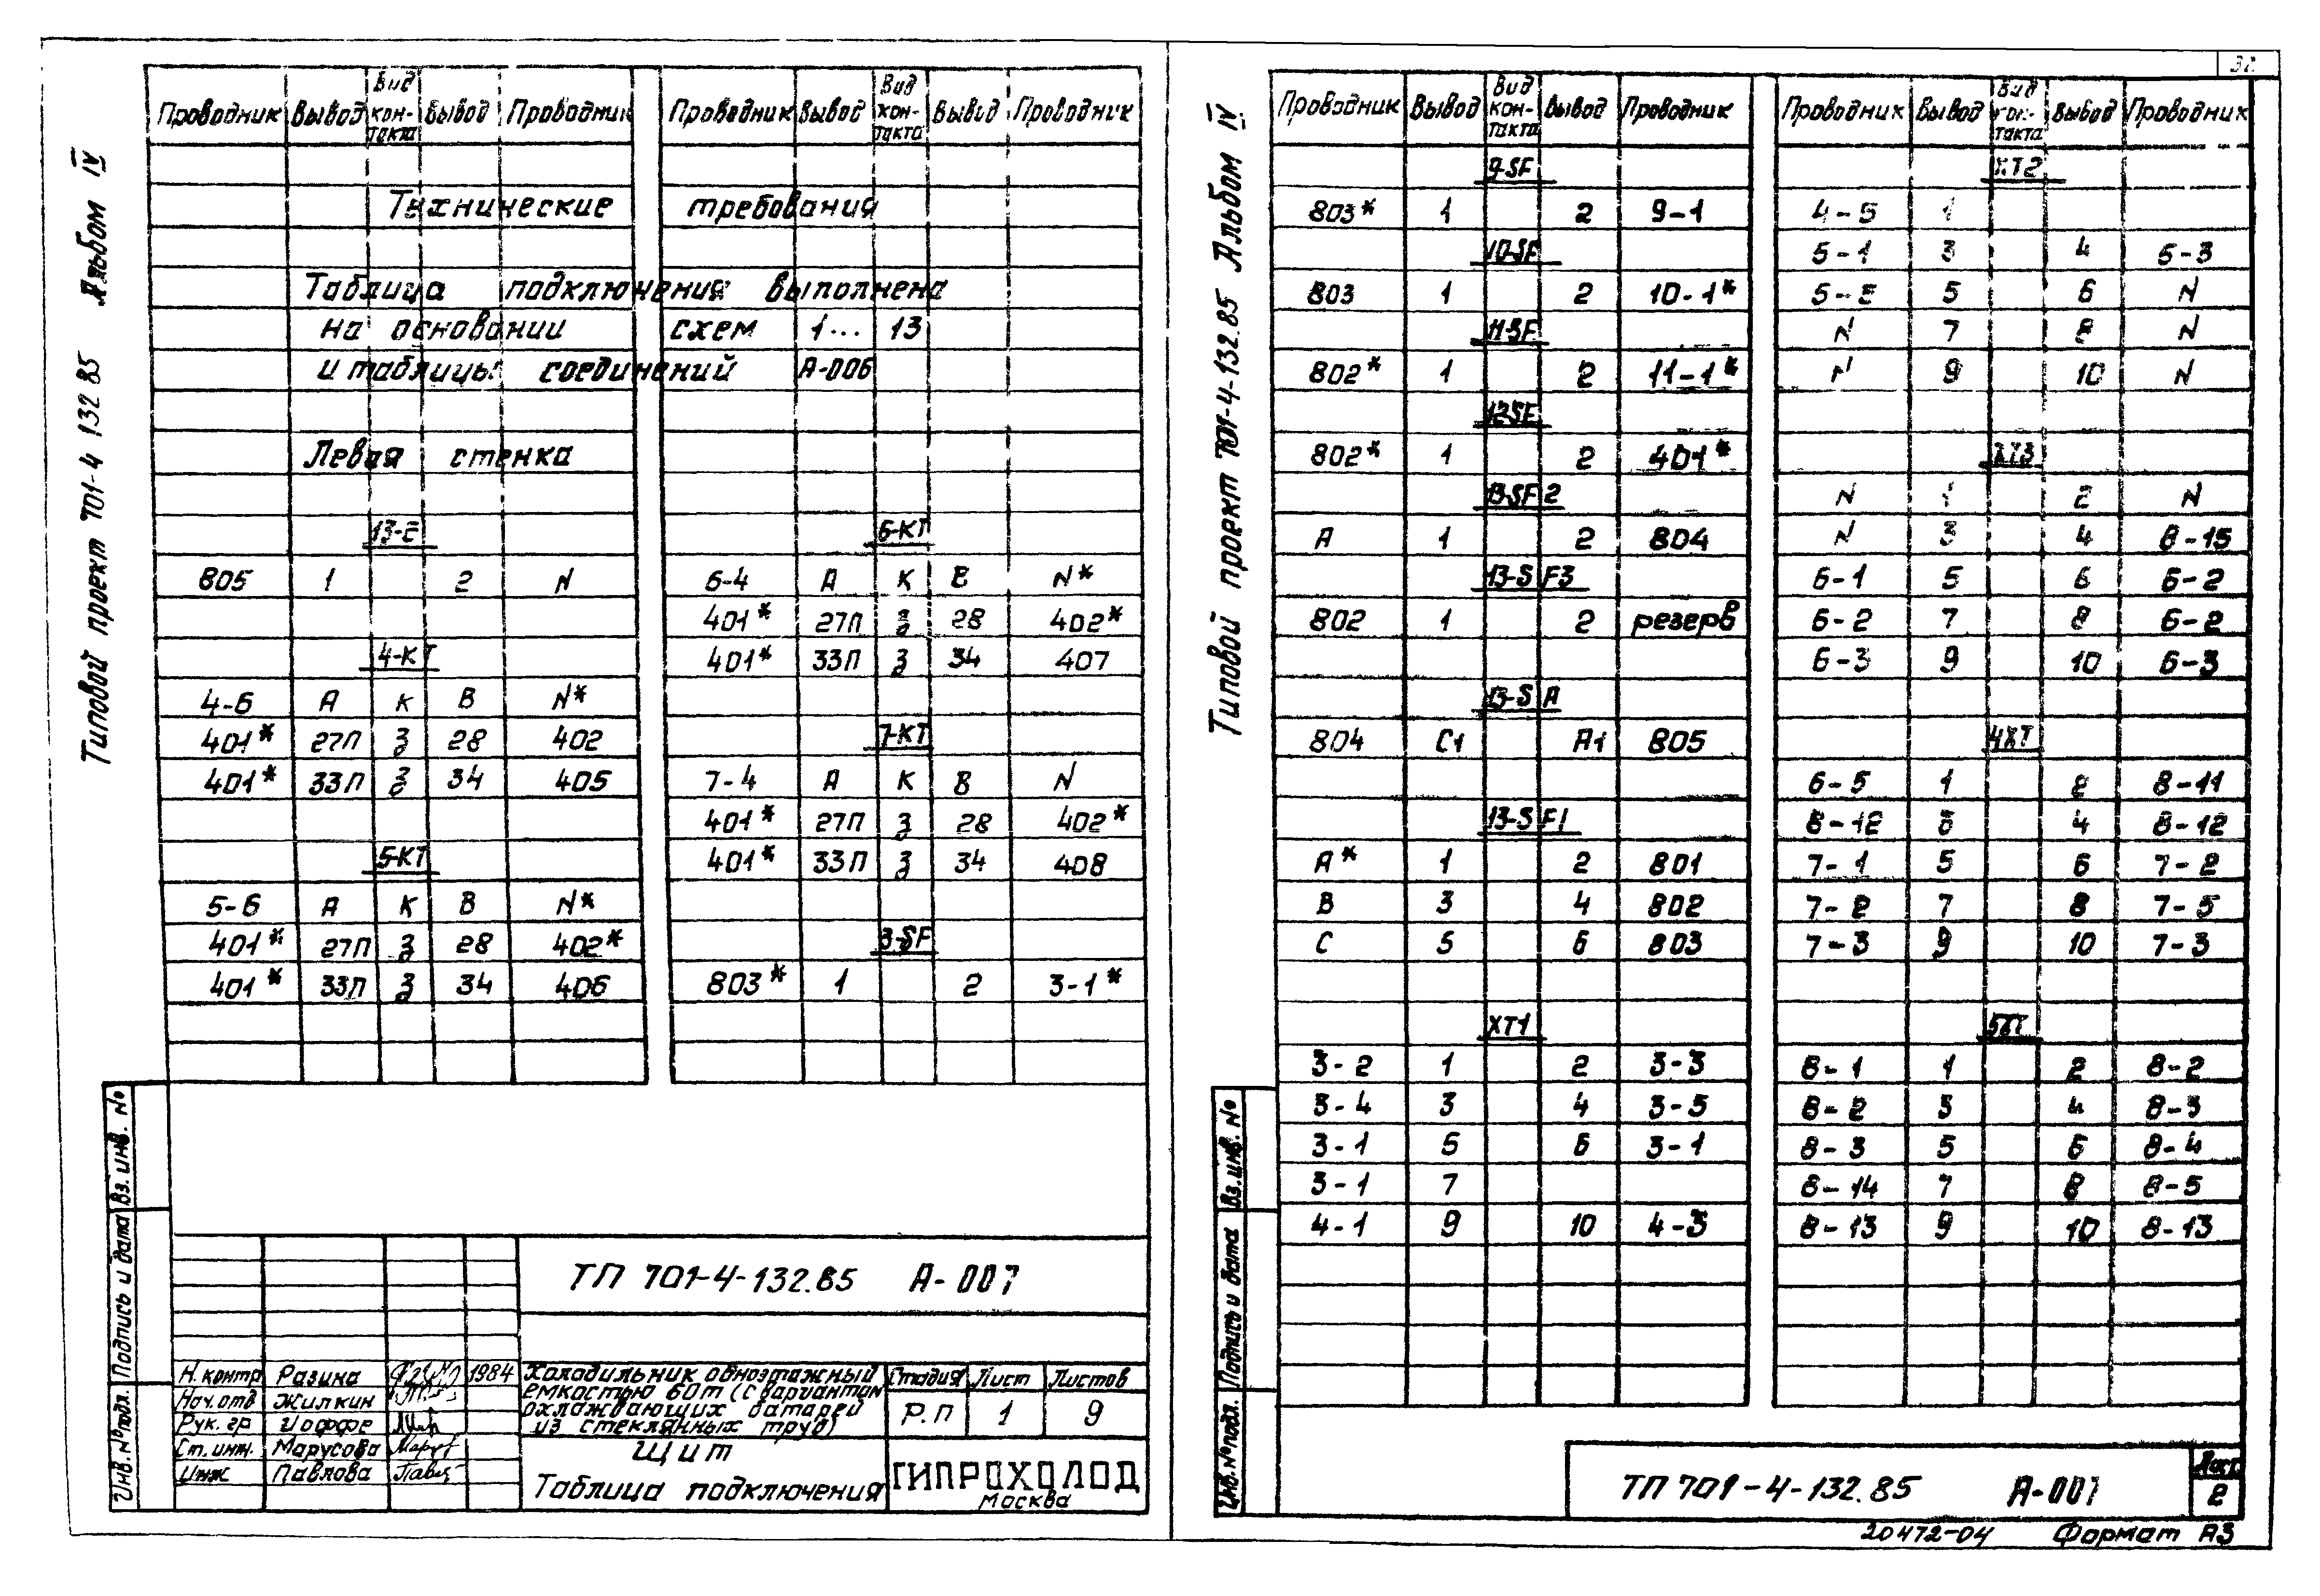 32
Типовой проект 701-4 132 85 Альбом IV
Проводник Вывод Вид контакта Вывод Проводник
Технические требования
Таблица подключения выполнена
на основании схем 1... 13
и таблицы соединений А-006
Левая стенка
13-Е
805 1 2 N
4-КТ
4-6 А К В N*
401* 27П З 28 402
401* 33П З 34 405
5-КТ
5-6 А К В N*
401* 27П З 28 402*
401* 33П З 34 406
Проводник Вывод Вид контакта Вывод Проводник
6-КТ
6-4 А К В N*
401* 27П З 28 402*
401* 33П З 34 407
7-КТ
7-4 А К В N
401* 27П З 28 402*
401* 33П З 34 408
3-SF
803* 1 2 3-1*
Инв. № подл. Подпись и дата Вз. инв. №
ТП 701-4-132.85 А-007
Н. контр Разина 1984
Нач. отд Жилкин
Рук. гр Иоффе
Ст. инж. Марусова
Инж Павлова
Холодильник одноэтажный
емкостью 60т (с вариантом
охлаждающих батарей
из стеклянных труб)
Щит
Таблица подключения
Стадия Лист Листов
Р.П 1 9
ГИПРОХОЛОД
Москва
Типовой проект 701-4-132.85 Альбом IV
Проводник Вывод Вид контакта Вывод Проводник
9-SF
803* 1 2 9-1
10-SF
803 1 2 10-1*
11-SF
802* 1 2 11-1*
12SF
802* 1 2 401*
13-SF2
А 1 2 804
13-SF3
802 1 2 резерв
13-SA
804 С1 А1 805
13-SF1
А* 1 2 801
В 3 4 802
С 5 6 803
ХТ1
3-2 1 2 3-3
3-4 3 4 3-5
3-1 5 6 3-1
3-1 7
4-1 9 10 4-3
Проводник Вывод Вид контакта Вывод Проводник
ХТ2
4-5 1
5-1 3 4 5-3
5-5 6 N
N 7 8 N
N 9 10 N
ХТ3
N 1 2 N
N 3 4 8-15
6-1 5 6 6-2
6-2 7 8 6-2
6-3 9 10 6-3
4ХТ
6-5 1 2 8-11
8-12 3 4 8-12
7-1 5 6 7-2
7-2 7 8 7-5
7-3 9 10 7-3
5ХТ
8-1 1 2 8-2
8-2 3 4 8-3
8-3 5 6 8-4
8-14 7 8 8-5
8-13 9 10 8-13
Инв. № подл. Подпись и дата Вз. инв. №
ТП 701-4-132.85 А-007
Лист
2
20472-04 Формат А3